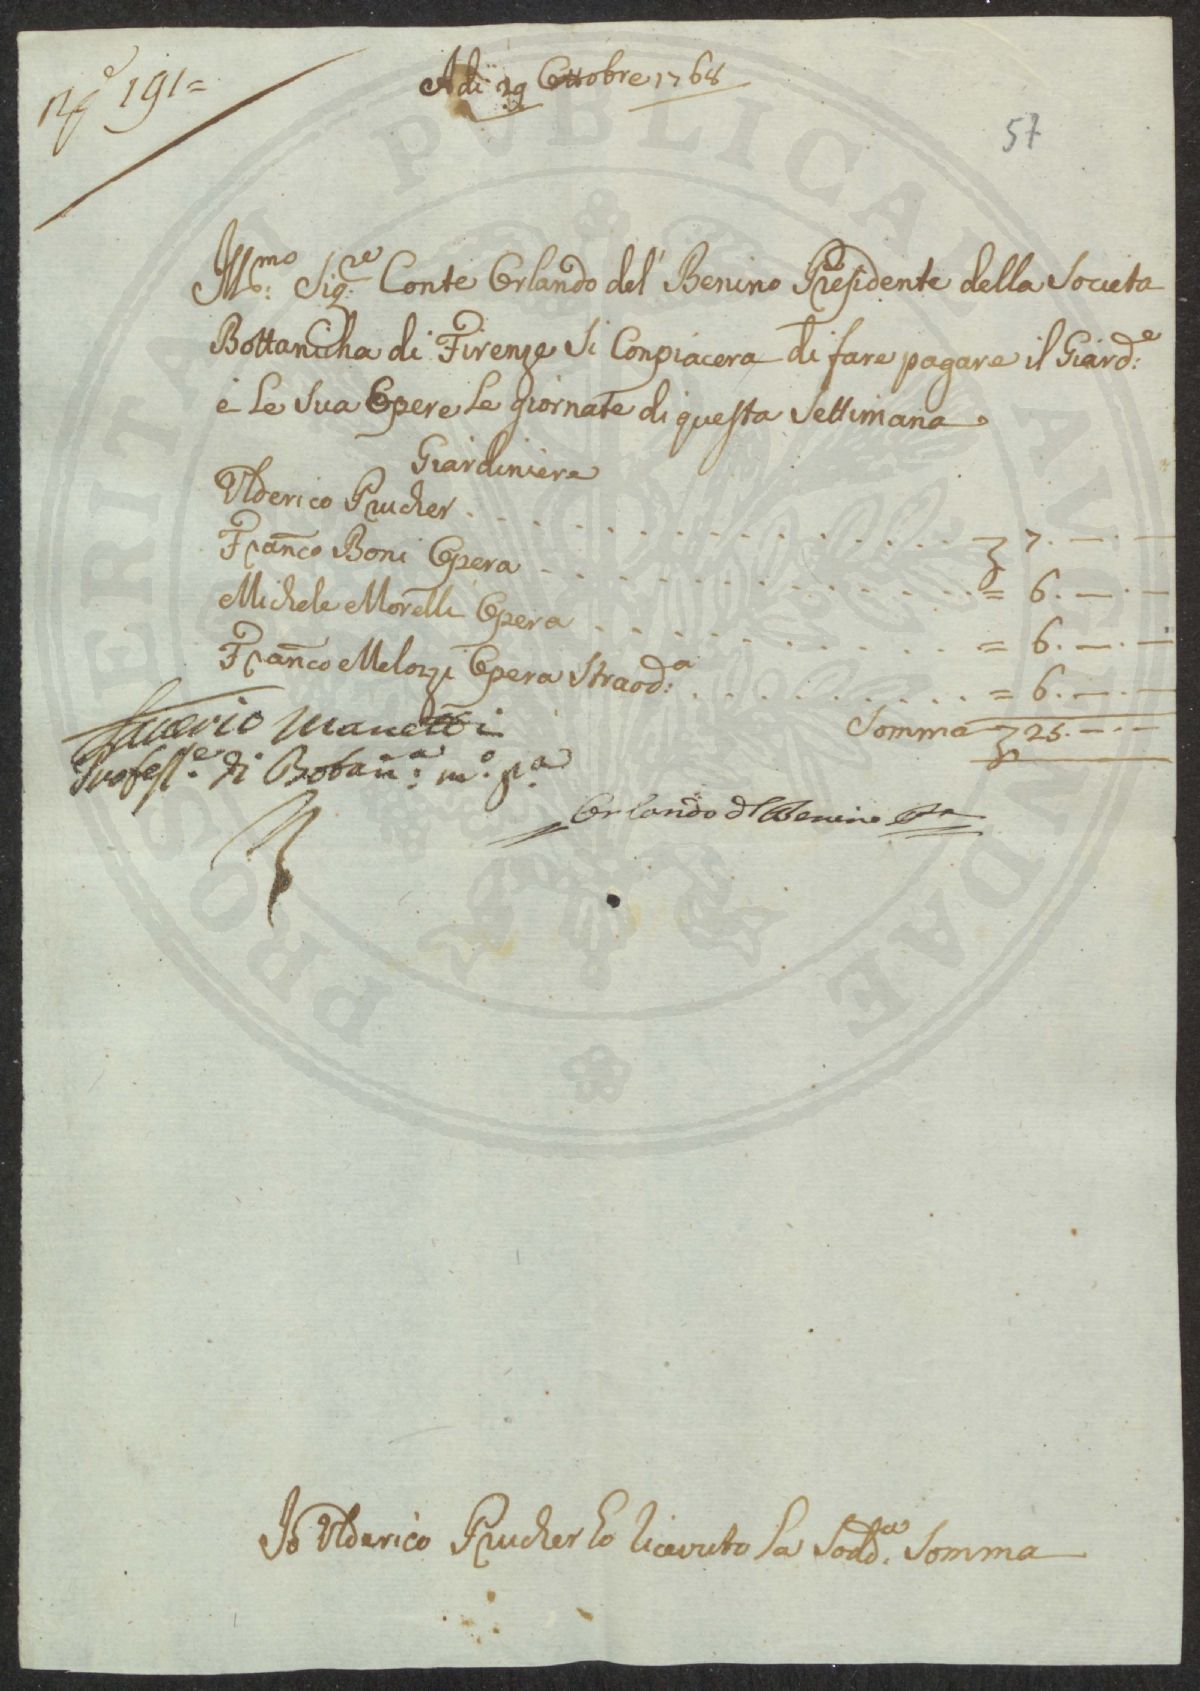 N.º 191=
Adi 29 Ottobre 1768
57
Ill:mo Sig:re Conte Orlando del' Benino Presidente della Societa
Bottanicha di Firenze Si Conpiacera di fare pagare il Giard:e
e Le Sua Opere Le giornate di questa Settimana
Giardiniere
Ulderico Prucher . . . . . . . . . . . . . . . 7. —. —
Franco Boni Opera . . . . . . . . . . . . = 6. —. —
Michele Morelli Opera . . . . . . . . . . . = 6. —. —
Franco Melozzi Opera Straord:a . . . . . . . . = 6. —. —
Somma 25. —. —
Saverio Manetti
Profess:e di Botan:a m:o p:a
Orlando dl Benino
Io Ulderico Prucher ho ricevuto la Sodd:a Somma
PERITATI PVBLICAE AVGENDAE PRO